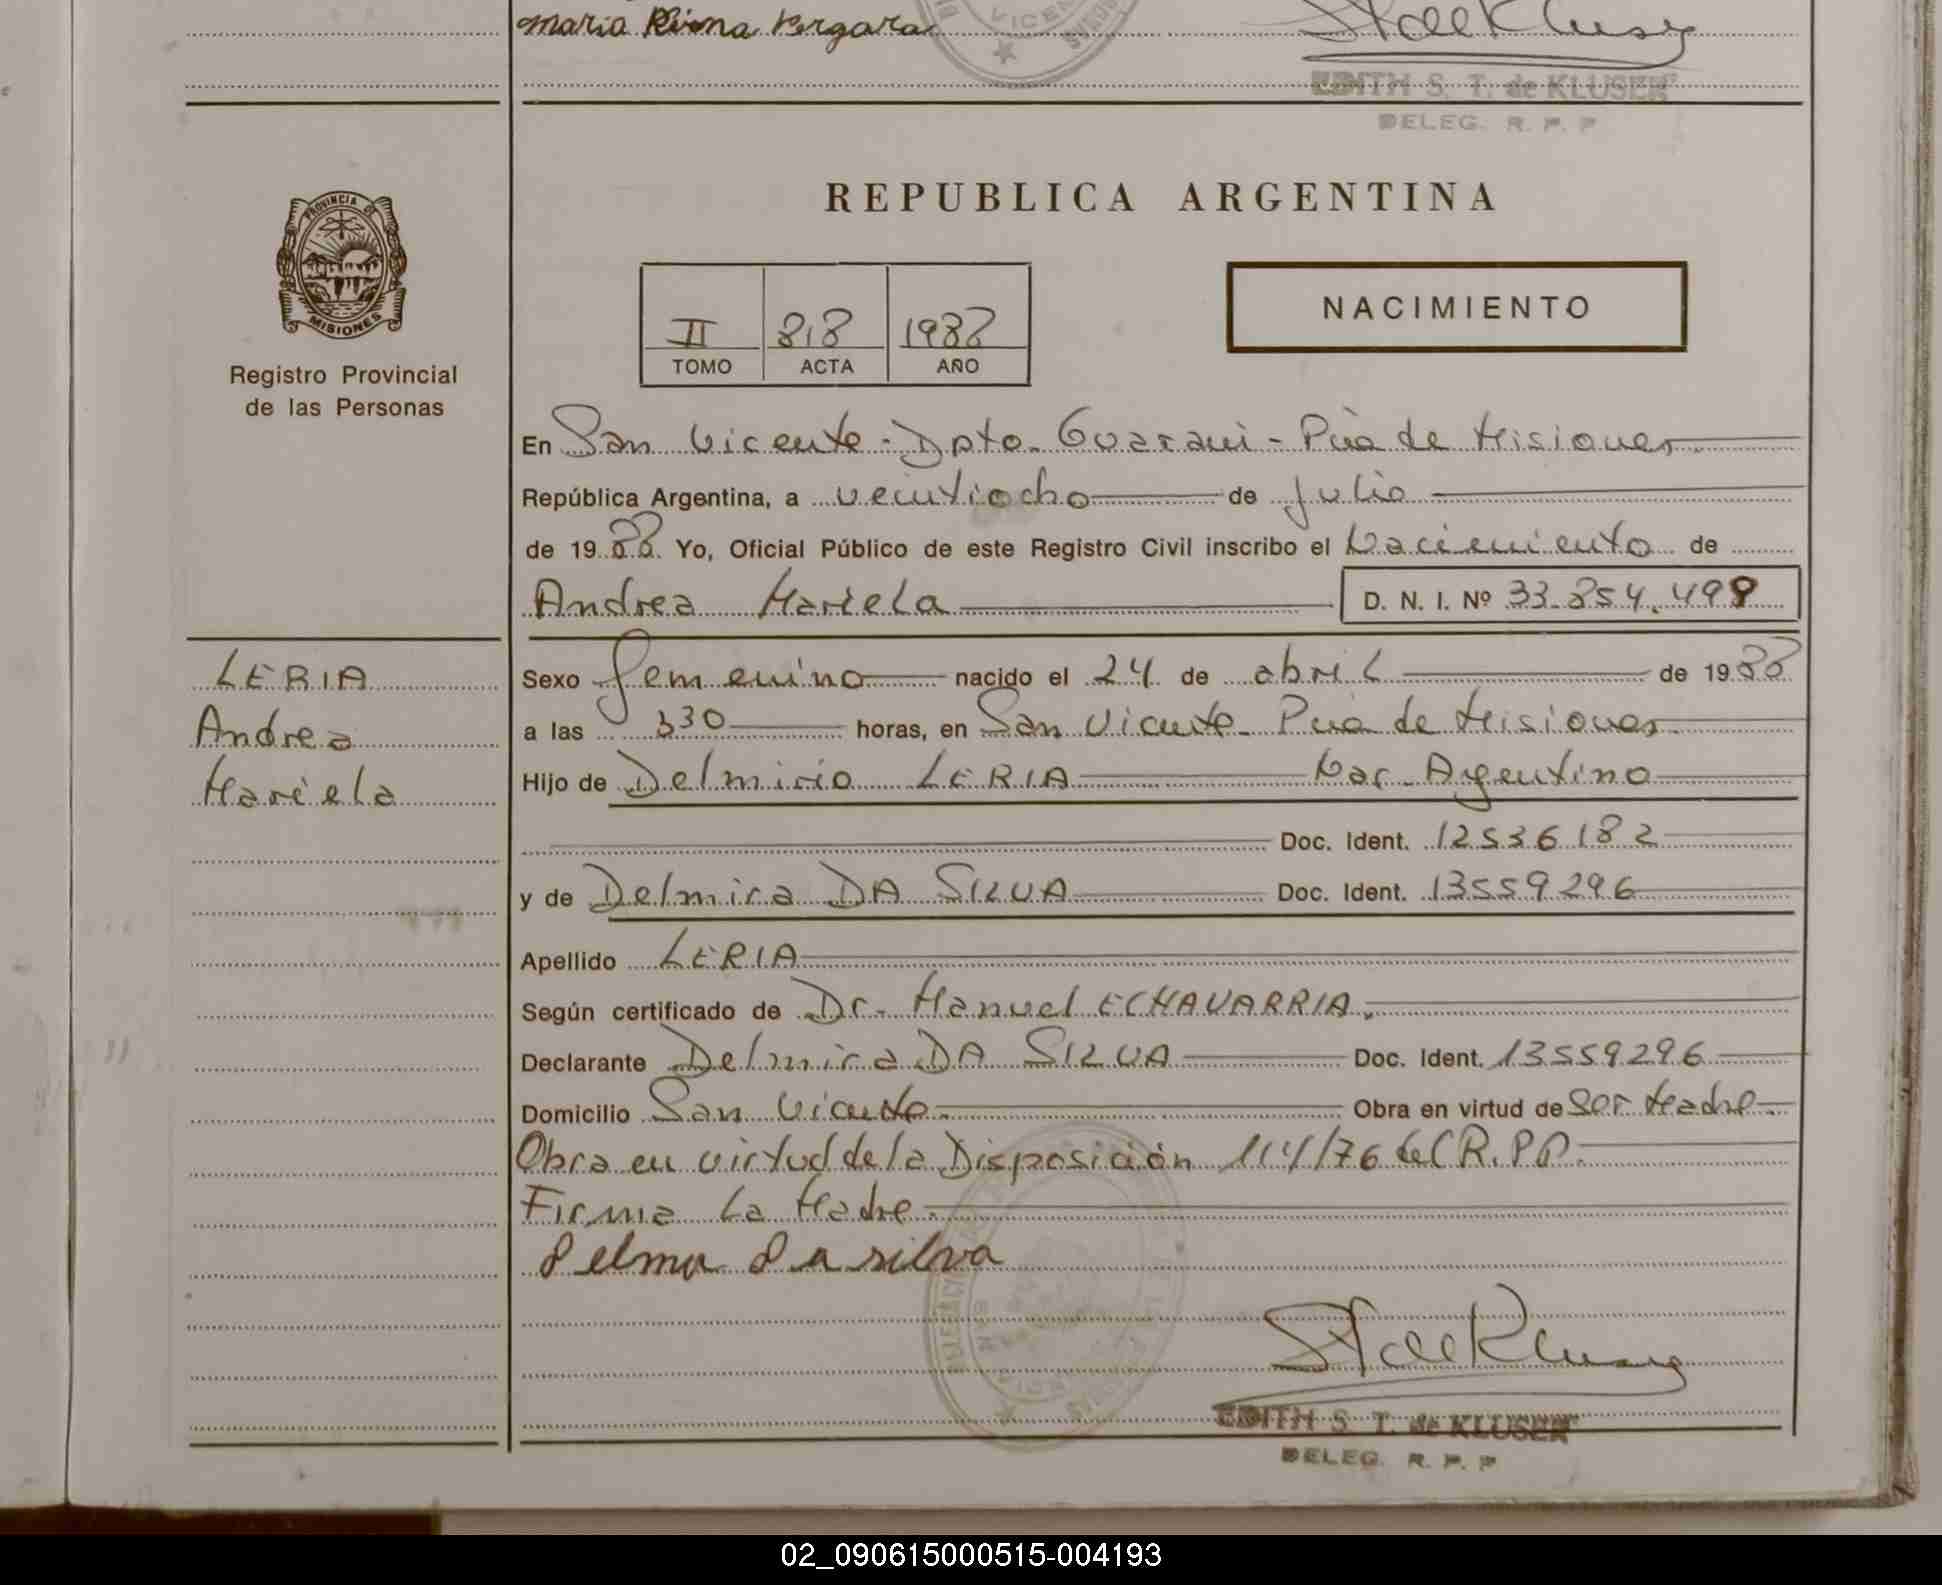 Maria Rivona Vergara
EDITH S. T. de KLUSER
DELEG. R. P. P
PROVINCIA DE
MISIONES
Registro Provincial
de las Personas
REPUBLICA ARGENTINA
II 818 1988
TOMO ACTA AÑO
NACIMIENTO
En San Vicente - Dpto. Guarani - Pcia de Misiones
República Argentina, a veintiocho de julio
de 1988 Yo, Oficial Público de este Registro Civil inscribo el Nacimiento de
Andrea Mariela D. N. I. Nº 33.854.499
LERIA
Andrea
Mariela
Sexo femenino nacido el 24 de abril de 1988
a las 330 horas, en San Vicente - Pcia de Misiones
Hijo de Delmirio LERIA Nac. Argentino
Doc. Ident. 12536182
y de Delmira DA SILVA Doc. Ident. 13559296
Apellido LERIA
Según certificado de Dr. Manuel ECHAVARRIA.
Declarante Delmira DA SILVA Doc. Ident. 13559296
Domicilio San Vicente. Obra en virtud de Ser Madre
Obra en virtud de la Disposición 114/76 del R.P.P.
Firma La Madre.
Delma Da silva
EDITH S. T. de KLUSER
DELEG. R. P. P
02_090615000515-004193